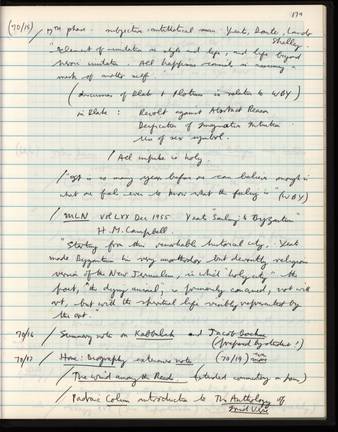 179
(70/15) / 17th phase. subjective antithetical man. Yeats, Dante, Landor
Shelley.
"Element of simulation in style and life, and life beyond
heroic simulation. All happiness consists in assuming a
mask of another self."
(discussion of Blake & Plotinus in relation to WBY)
in Blake : Revolt against Abstract Reason
Deification of Imaginative Intuition
Use of sex symbol.
/ All impulse is holy.
/ "it is so many years before one can believe enough in
what one feels even to know what the feeling is" (WBY)
/ MLN Vol LXX Dec 1955 Yeats "Sailing to Byzantium"
H.M. Campbell.
"Starting from this remarkable historical city, Yeats
made Byzantium his very unorthodox but devoutly religious
version of the New Jerusalem, in which 'holy city' the
poet, "the dying animal," is primarily concerned, not with
art, but with the spiritual life visibly represented by
the art."
70/16 / Summary note on Kabbalah and Jacob Boehme
(prepared by student!)
70/17 / Hone: Biography extensive note (70/19)
/ The Wind among the Reeds (extended commentary on poem)
/ Padraic Colum introduction to The Anthology of
Irish Verse